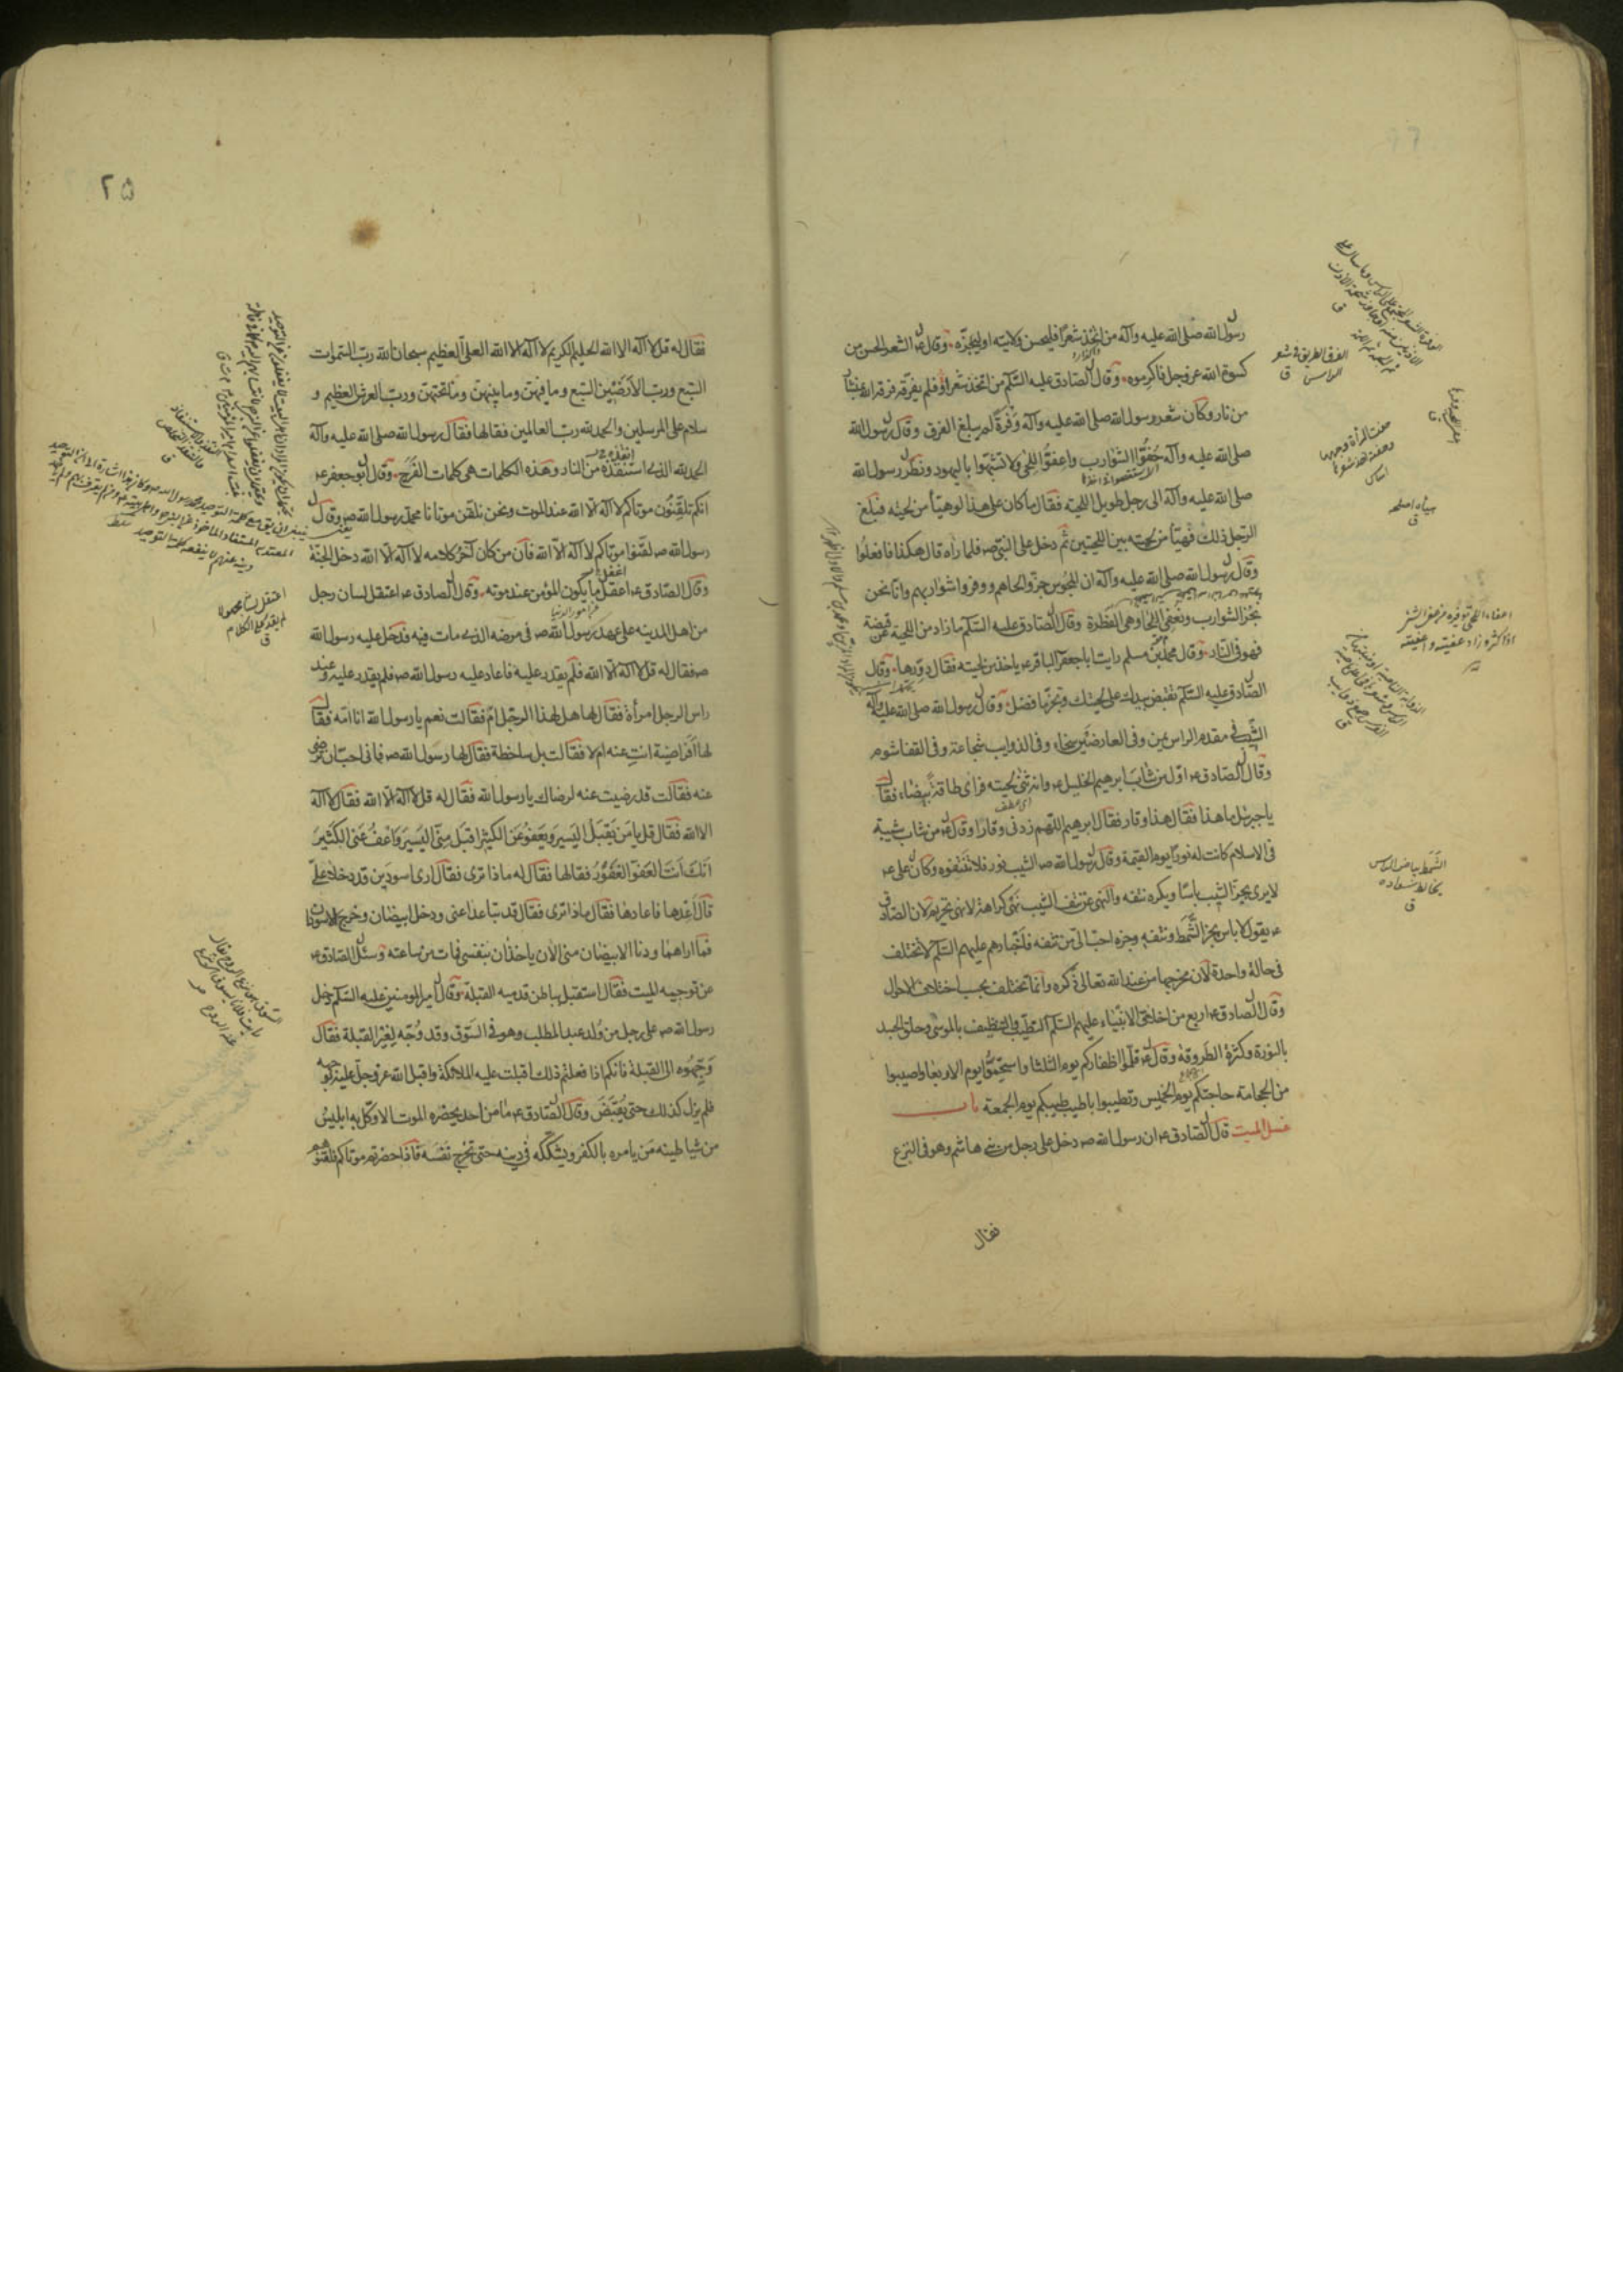 رسول الله صلى الله عليه وآله من اتخذ شعرا فليحسن ولايته او ليجزه وقال ع الشعر الحسن من
كسوة الله عز وجل فاكرموه وقال الصادق عليه السلم من اتخذ شعرا فلم يفرقه فرقه الله بمنشار
من نار وكان شعر رسول الله صلى الله عليه وآله وفرة لم يبلغ الفرق وقال رسول الله
صلى الله عليه وآله حفوا الشوارب واعفوا اللحى ولا تشبهوا باليهود ونظر رسول الله
صلى الله عليه وآله الى رجل طويل اللحية فقال ما كان على هذا لو هيأ من لحيته فبلغ
الرجل ذلك فهيأ من لحيته بين اللحيتين ثم دخل على النبي ص فلما رآه قال هكذا فافعلوا
وقال رسول الله صلى الله عليه وآله ان المجوس جزوا لحاهم ووفروا شواربهم وانا نحن
نجز الشوارب ونعفي اللحا وهي الفطرة وقال الصادق عليه السلم ما زاد من اللحية عن قبضة
فهو في النار وقال محمد بن مسلم رايت ابا جعفر الباقر ع ياخذ من لحيته فقال دورها وقال
الصادق عليه السلم تقبض بيدك على لحيتك وتجز ما فضل وقال رسول الله صلى الله عليه وآله
الشيب في مقدم الراس يمن وفي العارضين سخاء وفي الذوايب شجاعة وفي القفا شوم
وقال الصادق ع اول من شاب ابرهيم الخليل ع وانه ثنى لحيته فراى طاقة بيضاء فقال
يا جبرئيل ما هذا فقال هذا وقار فقال ابرهيم اللهم زدني وقارا وقال ع من شاب شيبة
في الاسلام كانت له نورا يوم القيمة وقال رسول الله ص الشيب نور فلا تنتفوه وكان علي ع
لا يرى بجز الشيب باسا ويكره نتفه والنهي عن نتف الشيب نهي كراهة لا نهي تحريم لان الصادق
ع يقول لا باس بجز الشمط ونتفه وجزه احب الي من نتفه فاخبارهم عليهم السلم لا تختلف
في حالة واحدة لان مخرجها من عند الله تعالى ذكره وانما تختلف بحسب اختلاف الاحوال
وقال الصادق ع اربع من اخلاق الانبياء عليهم السلم التطيب والتنظيف بالموسى وحلق الجسد
بالنورة وكثرة الطروقة وقال ع قلموا اظفاركم يوم الثلثا واستحموا يوم الاربعا واصيبوا
من الحجامة حاجتكم يوم الخميس وتطيبوا باطيب طيبكم يوم الجمعة باب
غسل الميت قال الصادق ع ان رسول الله ص دخل على رجل من بني هاشم وهو في النزع
فقال
الفرق الطريق في شعر
الراس ق
اعفاء اللحى توفيره من عفى الشئ
اذا كثر وزاد عفيته واعفيته
الشمط بياض الراس
يخالط سواده
ق
هيأه اصلحه
ق
۲۵
فقال له قل لا آله الا الله الحليم الكريم لا آله الا الله العلي العظيم سبحان الله رب السموات
السبع ورب الارضين السبع وما فيهن وما بينهن وما تحتهن ورب العرش العظيم و
سلام على المرسلين والحمد لله رب العالمين فقالها فقال رسول الله صلى الله عليه وآله
الحمد لله الذي استنقذه من النار وهذه الكلمات هي كلمات الفرج وقال ابو جعفر ع
انكم تلقنون موتاكم لا آله الا الله عند الموت ونحن نلقن موتانا محمد رسول الله ص وقال
رسول الله ص لقنوا موتاكم لا آله الا الله فان من كان آخر كلامه لا آله الا الله دخل الجنة
وقال الصادق ع اعقل ما يكون المؤمن عند موته وقال الصادق ع اعتقل لسان رجل
من اهل المدينه على عهد رسول الله ص في مرضه الذي مات فيه فدخل عليه رسول الله
ص فقال له قل لا آله الا الله فلم يقدر عليه فاعاد عليه رسول الله ص فلم يقدر عليه وعند
راس الرجل امرأة فقال لها هل لهذا الرجل ام فقالت نعم يا رسول الله انا امه فقال
لها أفراضية انت عنه ام لا فقالت بل ساخطة فقال لها رسول الله ص فاني احب ان ترضى
عنه فقالت قد رضيت عنه لرضاك يا رسول الله فقال له قل لا آله الا الله فقال لا آله
الا الله فقال قل يا من يقبل اليسير ويعفو عن الكثير اقبل مني اليسير واعف عني الكثير
انك انت العفو الغفور فقالها فقال له ماذا ترى فقال ارى اسودين قد دخلا علي
قال اعدها فاعادها فقال ماذا ترى فقال قد تباعدا عني ودخل ابيضان وخرج الاسودان
فما اراهما ودنا الابيضان مني الآن ياخذان بنفسي فمات من ساعته وسئل الصادق ع
عن توجيه الميت فقال استقبل بباطن قدميه القبلة وقال امير المومنين عليه السلم دخل
رسول الله ص على رجل من ولد عبد المطلب وهو في السوق وقد وجه لغير القبلة فقال
وجهوه الى القبلة فانكم اذا فعلتم ذلك اقبلت عليه الملائكة واقبل الله عز وجل عليه بوجهه
فلم يزل كذلك حتى يقبض وقال الصادق ع ما من احد يحضره الموت الا وكل به ابليس
من شياطينه من يامره بالكفر ويشككه في دينه حتى تخرج نفسه فاذا حضرتم موتاكم فلقنوهم
اعتقل لسانه مجهولا
لم يقدر على الكلام
ق